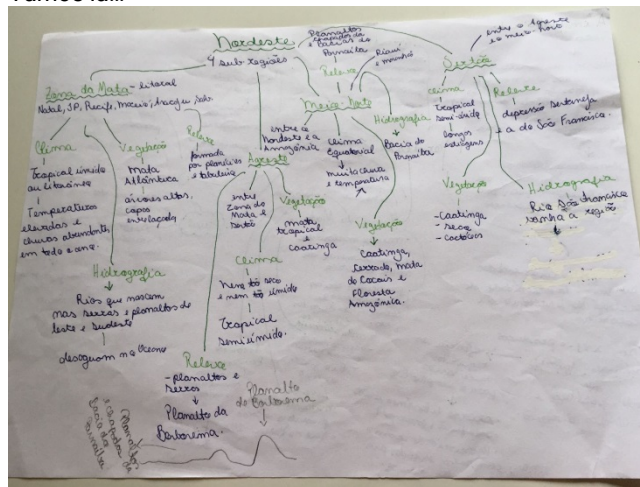 Nordeste
4 sub regiões
Zona da Mata - litoral
Natal, JP, Recife, Maceió, Aracaju, Sal
Clima
Tropical úmido
ou litorâneo
Temperaturas
elevadas e
chuvas abundantes
em todo o ano.
Vegetação
Mata
Atlântica
árvores altas,
copas
entrelaçadas
Relevo
formada
por planícies
e tabuleiros
Hidrografia
Rios que nascem
nas serras e planaltos do
leste e sudeste
desaguam no Oceano
Agreste
entre
Zona da
Mata e
Sertão
Vegetação
mata
tropical
e
caatinga
Clima
Nem tão seco
e nem tão úmido
Tropical
semiúmido.
Relevo
- planaltos e
serras
Planalto da
Borborema.
Meio-Norte
Piauí
e maranhão
Relevo
Planaltos
chapadas da
e Bacias do
Parnaíba
entre o
Nordeste e a
Amazônia
Clima
Equatorial
muita chuva
e temperatura
Hidrografia
Bacia do
Parnaíba
Vegetação
Caatinga,
Cerrado, Mata
do Cocais e
Floresta
Amazônica.
Sertão
entre o Agreste
e o meio-norte
Clima
Tropical
semi-árido
longas
estiagens
Relevo
depressão sertaneja
e a do São Francisco.
Vegetação
- Caatinga
- secas
- cactáceas
Hidrografia
Rio São Francisco
banha a região
Planalto
da Borborema
Planaltos
e chapadas da
Bacia do
Parnaíba